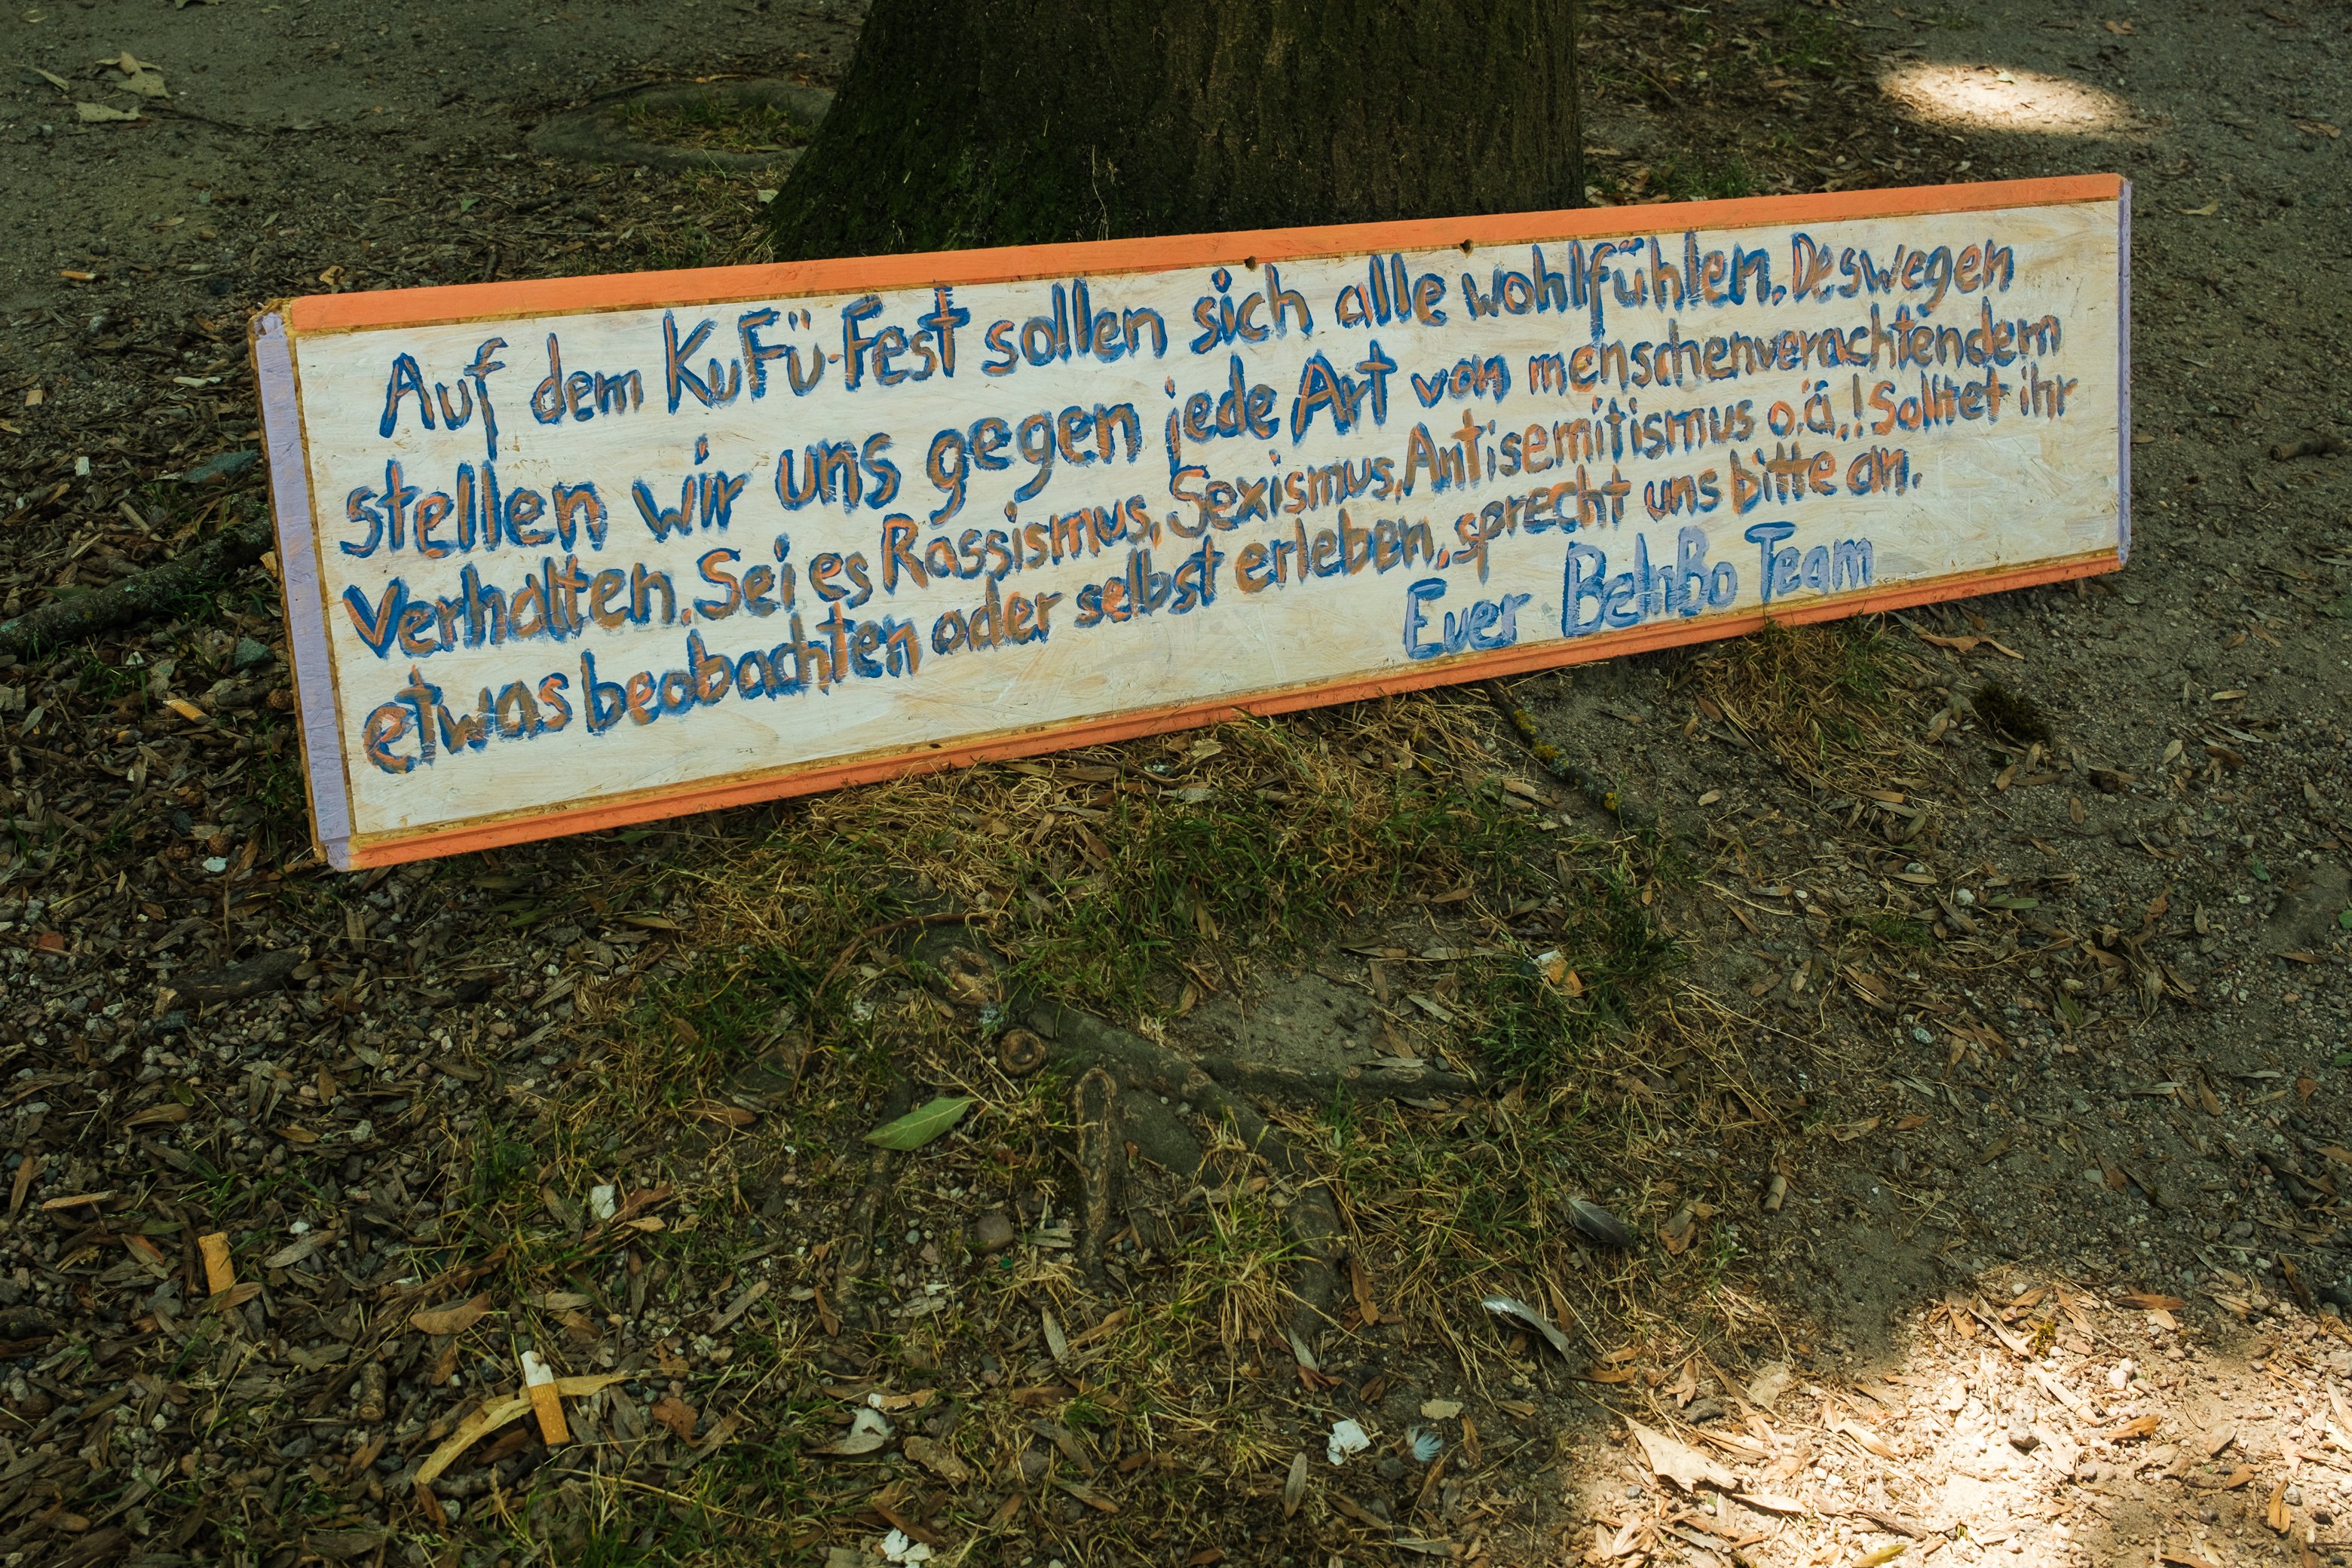 Auf dem KuFü-Fest sollen sich alle wohlfühlen. Deswegen
stellen wir uns gegen jede Art von menschenverachtendem
Verhalten. Sei es Rassismus, Sexismus, Antisemitismus o.ä.! Solltet ihr
etwas beobachten oder selbst erleben, sprecht uns bitte an.
Euer BehBo Team